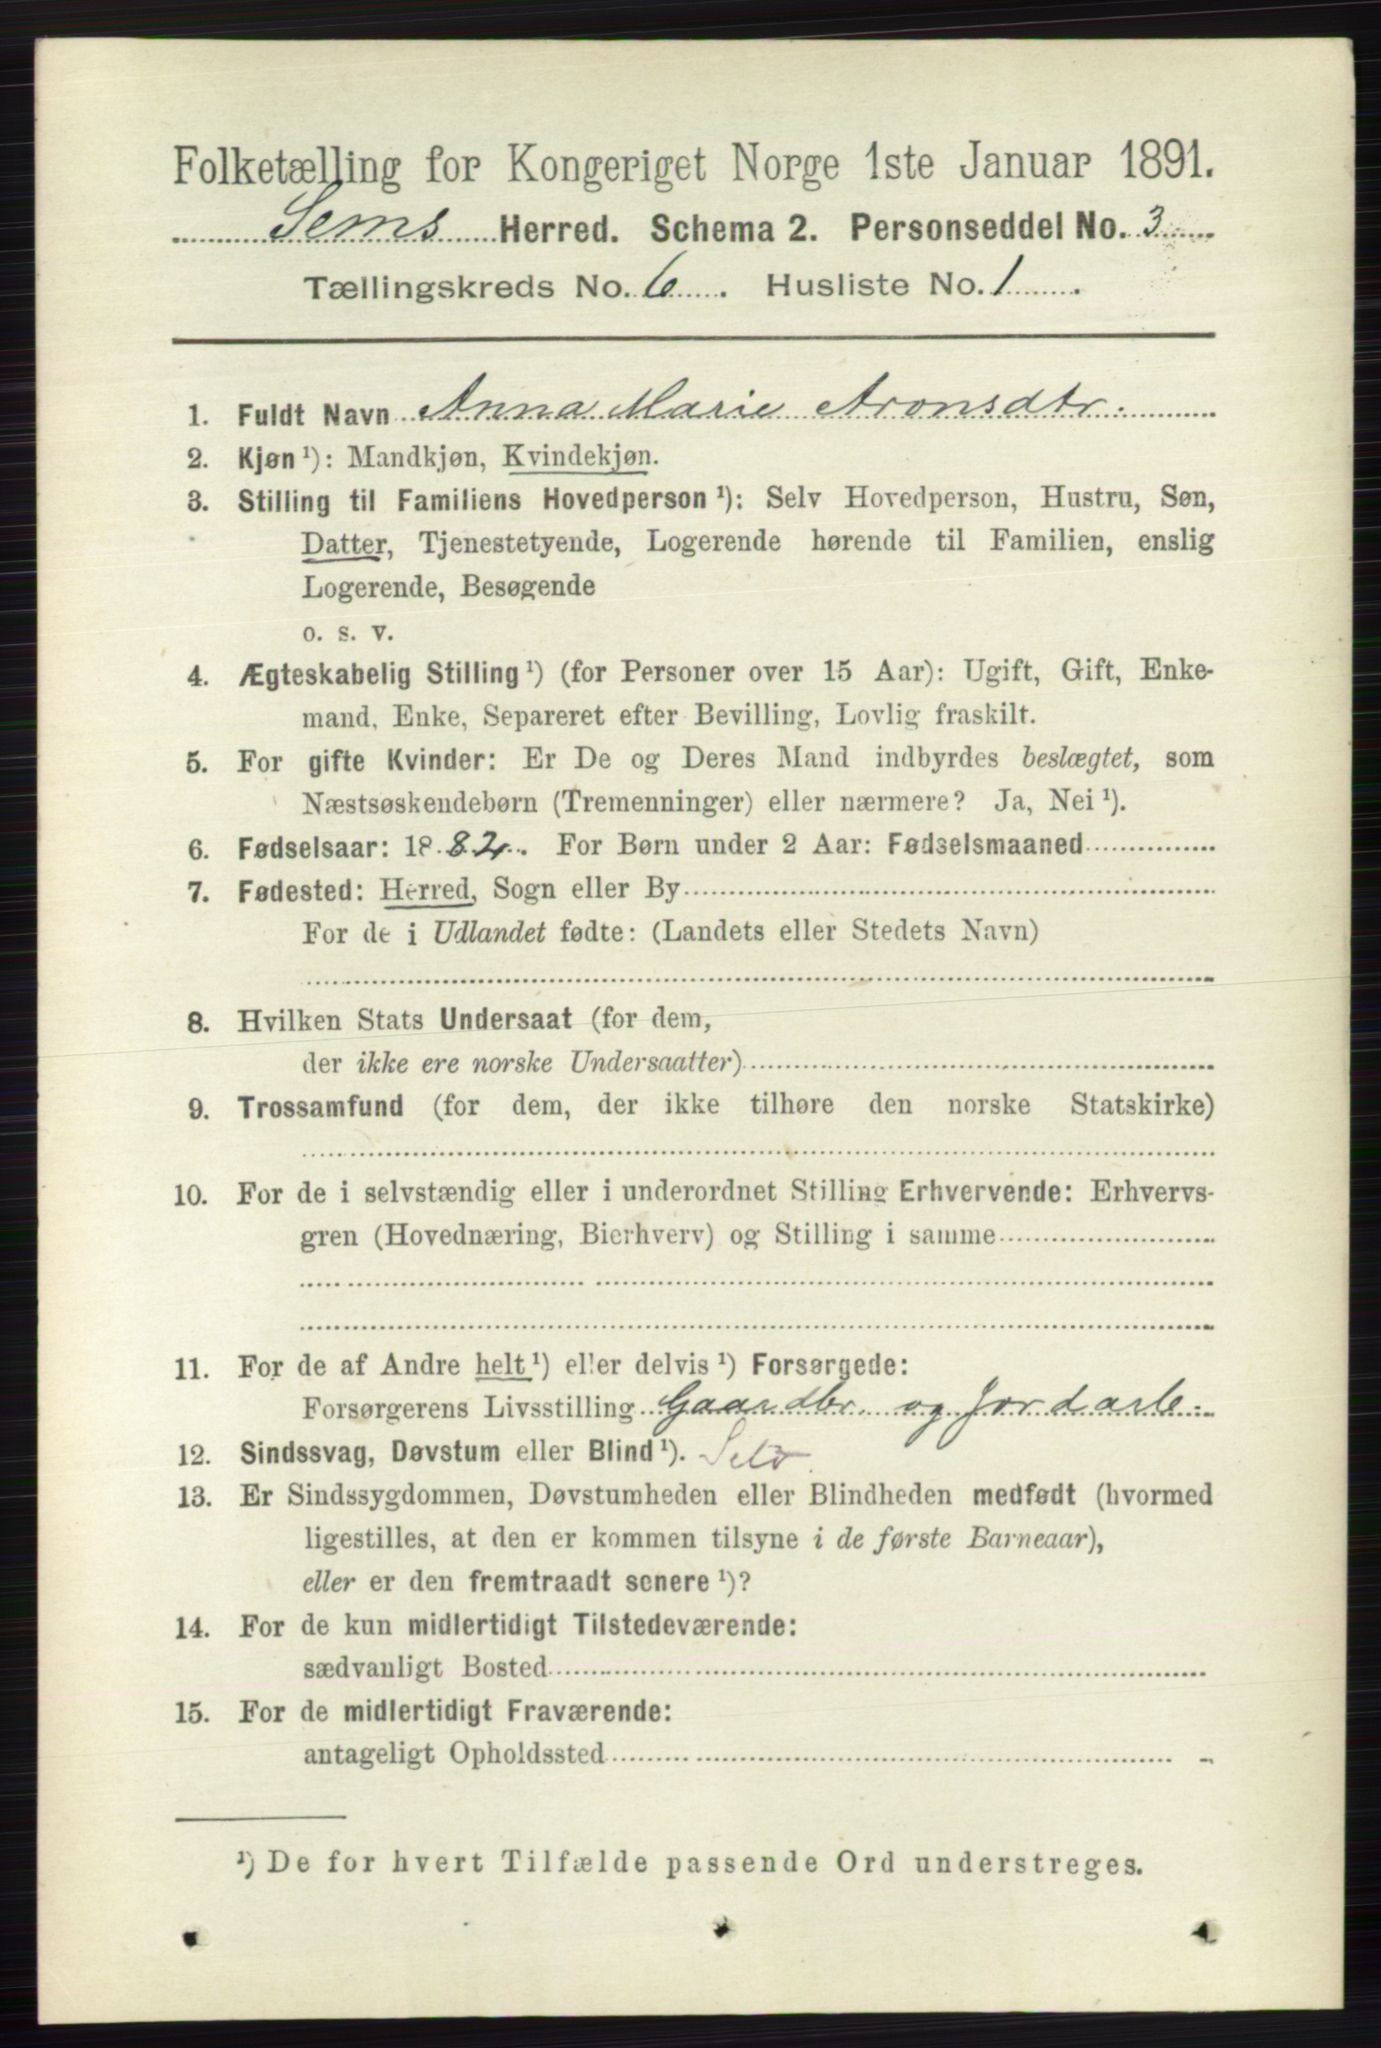 Folketælling for Kongeriget Norge 1ste Januar 1891.
Sems Herred. Schema 2. Personseddel No. 3
Tællingskreds No. 6. Husliste No. 1.
1. Fuldt Navn Anna Marie Aronsdtr.
2. Kjøn ¹): Mandkjøn, Kvindekjøn.
3. Stilling til Familiens Hovedperson ¹): Selv Hovedperson, Hustru, Søn,
Datter, Tjenestetyende, Logerende hørende til Familien, enslig
Logerende, Besøgende
o. s. v.
4. Ægteskabelig Stilling ¹) (for Personer over 15 Aar): Ugift, Gift, Enke-
mand, Enke, Separeret efter Bevilling, Lovlig fraskilt.
5. For gifte Kvinder: Er De og Deres Mand indbyrdes beslægtet, som
Næstsøskendebørn (Tremenninger) eller nærmere? Ja, Nei ¹).
6. Fødselsaar: 1882. For Børn under 2 Aar: Fødselsmaaned
7. Fødested: Herred, Sogn eller By
For de i Udlandet fødte: (Landets eller Stedets Navn)
8. Hvilken Stats Undersaat (for dem,
der ikke ere norske Undersaatter)
9. Trossamfund (for dem, der ikke tilhøre den norske Statskirke)
10. For de i selvstændig eller i underordnet Stilling Erhvervende: Erhvervs-
gren (Hovednæring, Bierhverv) og Stilling i samme
11. For de af Andre helt ¹) eller delvis ¹) Forsørgede:
Forsørgerens Livsstilling Gaardbr. og Jordarb.
12. Sindssvag, Døvstum eller Blind ¹). Selv
13. Er Sindssygdommen, Døvstumheden eller Blindheden medfødt (hvormed
ligestilles, at den er kommen tilsyne i de første Barneaar),
eller er den fremtraadt senere ¹)?
14. For de kun midlertidigt Tilstedeværende:
sædvanligt Bosted
15. For de midlertidigt Fraværende:
antageligt Opholdssted
¹) De for hvert Tilfælde passende Ord understreges.